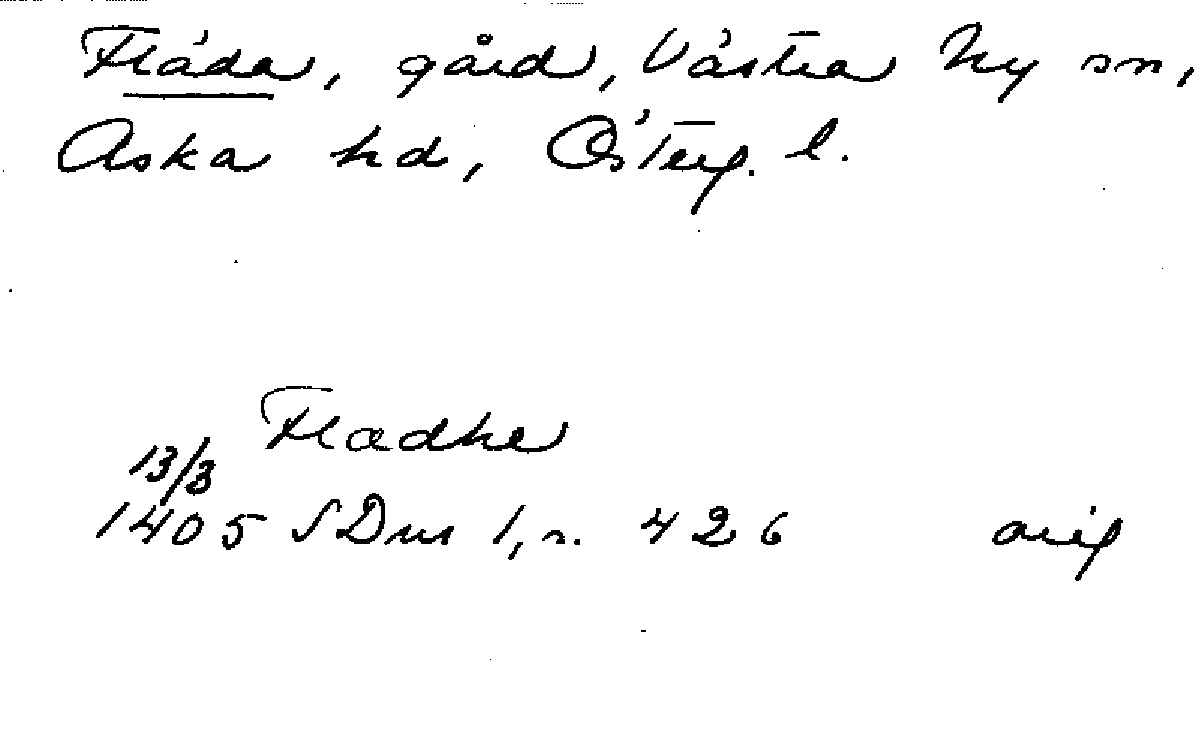 Fläda, gård, Västra Ny sn,
Aska hd, Österg. l.
Fladhe
13/3
1405 SDns 1, s. 426 orig